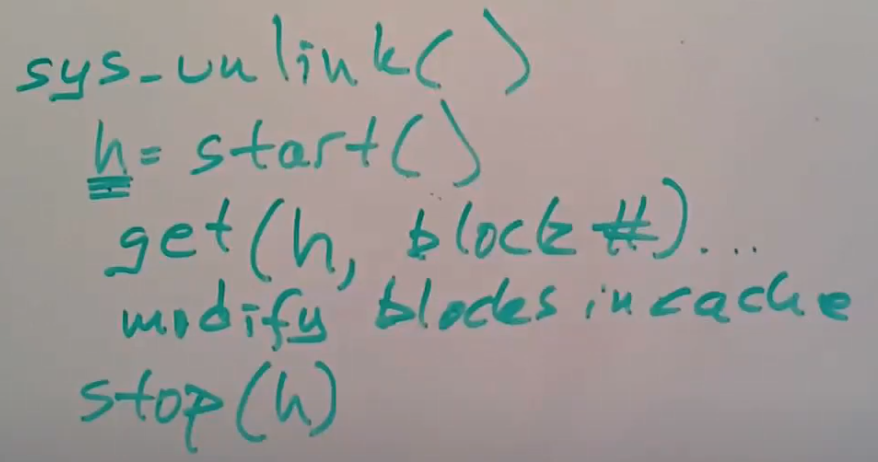 sys_unlink()
h = start()
get(h, block #)...
modify blocks in cache
stop(h)